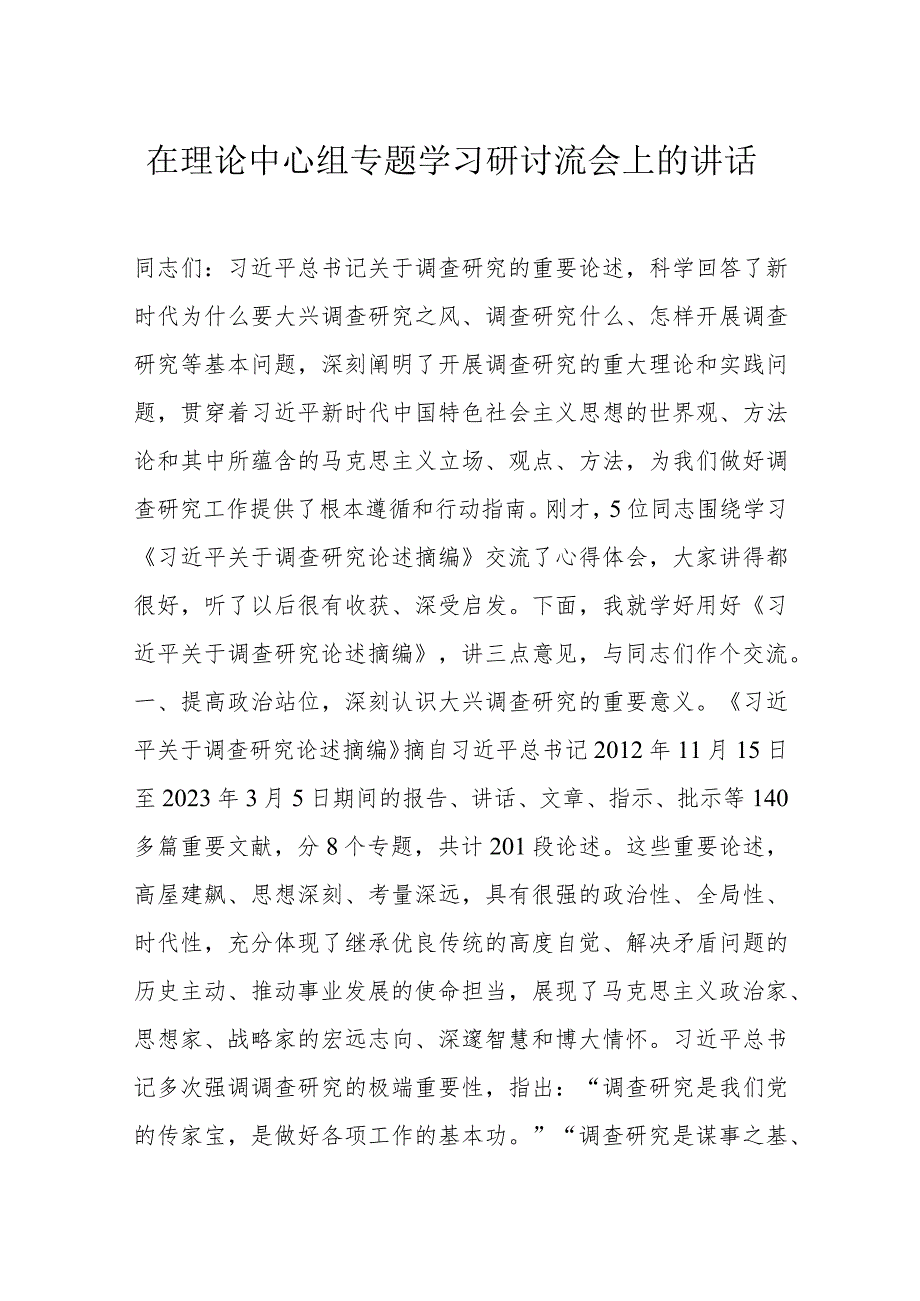 在理论中心组专题学习研讨流会上的讲话
同志们：习近平总书记关于调查研究的重要论述，科学回答了新
时代为什么要大兴调查研究之风、调查研究什么、怎样开展调查
研究等基本问题，深刻阐明了开展调查研究的重大理论和实践问
题，贯穿着习近平新时代中国特色社会主义思想的世界观、方法
论和其中所蕴含的马克思主义立场、观点、方法，为我们做好调
查研究工作提供了根本遵循和行动指南。刚才，5位同志围绕学习
《习近平关于调查研究论述摘编》交流了心得体会，大家讲得都
很好，听了以后很有收获、深受启发。下面，我就学好用好《习
近平关于调查研究论述摘编》，讲三点意见，与同志们作个交流。
一、提高政治站位，深刻认识大兴调查研究的重要意义。《习近
平关于调查研究论述摘编》摘自习近平总书记2012年11月15日
至2023年3月5日期间的报告、讲话、文章、指示、批示等140
多篇重要文献，分8个专题，共计201段论述。这些重要论述，
高屋建瓴、思想深刻、考量深远，具有很强的政治性、全局性、
时代性，充分体现了继承优良传统的高度自觉、解决矛盾问题的
历史主动、推动事业发展的使命担当，展现了马克思主义政治家、
思想家、战略家的宏远志向、深邃智慧和博大情怀。习近平总书
记多次强调调查研究的极端重要性，指出：“调查研究是我们党
的传家宝，是做好各项工作的基本功。”“调查研究是谋事之基、